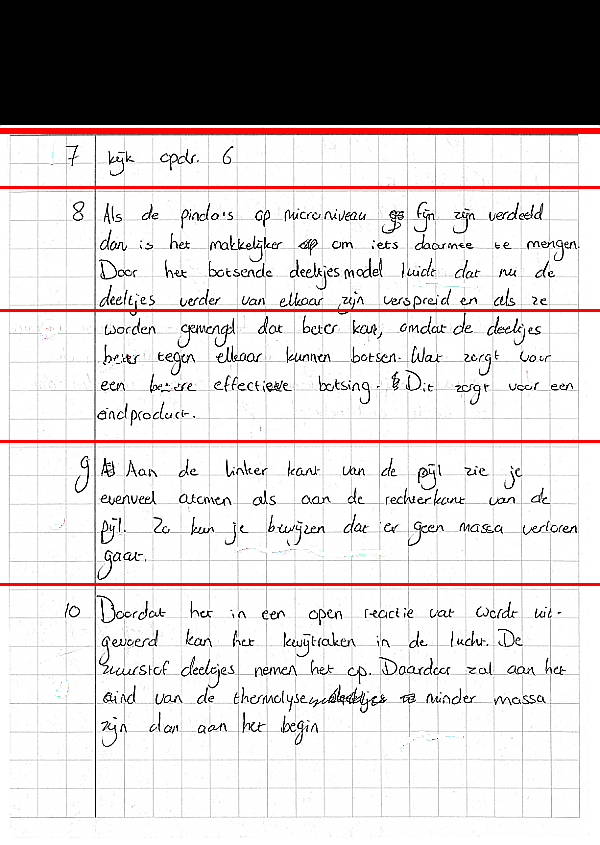 7 kijk opdr. 6
8 Als de pinda's op micro niveau fijn zijn verdeeld
dan is het makkelijker om iets daarmee te mengen.
Door het botsende deeltjes model luidt dat nu de
deeltjes verder van elkaar zijn verspreid en als ze
worden gemengd dat beter kan, omdat de deeltjes
beter tegen elkaar kunnen botsen. Wat zorgt voor
een betere effectieve botsing. Dit zorgt voor een
eindproduct.
9 Aan de linker kant van de pijl zie je
evenveel atomen als aan de rechterkant van de
pijl. Zo kun je bewijzen dat er geen massa verloren
gaat.
10 Doordat het in een open reactie vat wordt uit-
gevoerd kan het kwijtraken in de lucht. De
zuurstof deeltjes nemen het op. Daardoor zal aan het
eind van de thermolyse minder massa
zijn dan aan het begin